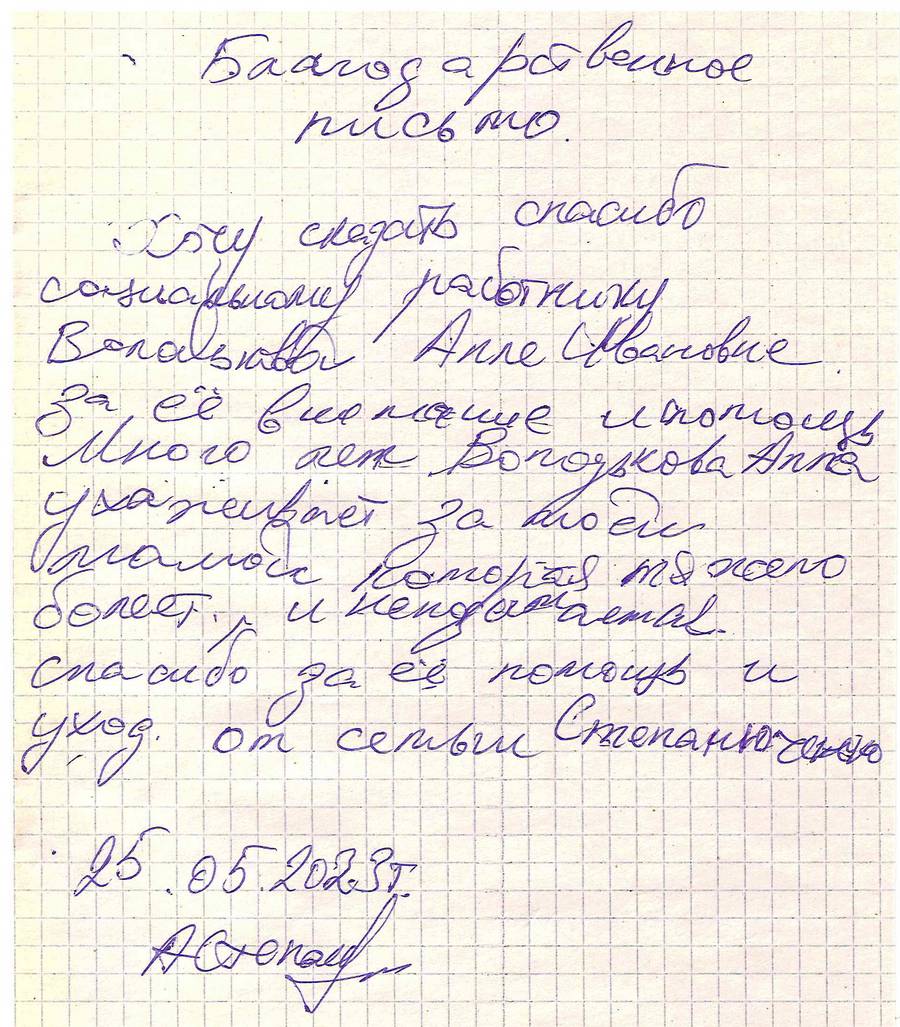 Благодарственное
письмо.
Хочу сказать спасибо
социальному работнику
Алле Ивановне.
за её внимание и помощь
Много лет Володькова Алла
ухаживает за моей
мамой которая тяжело
болеет., и
спасибо за её помощь и
уход. от семьи Степанюченко
25.05.2023г.
АСтепан